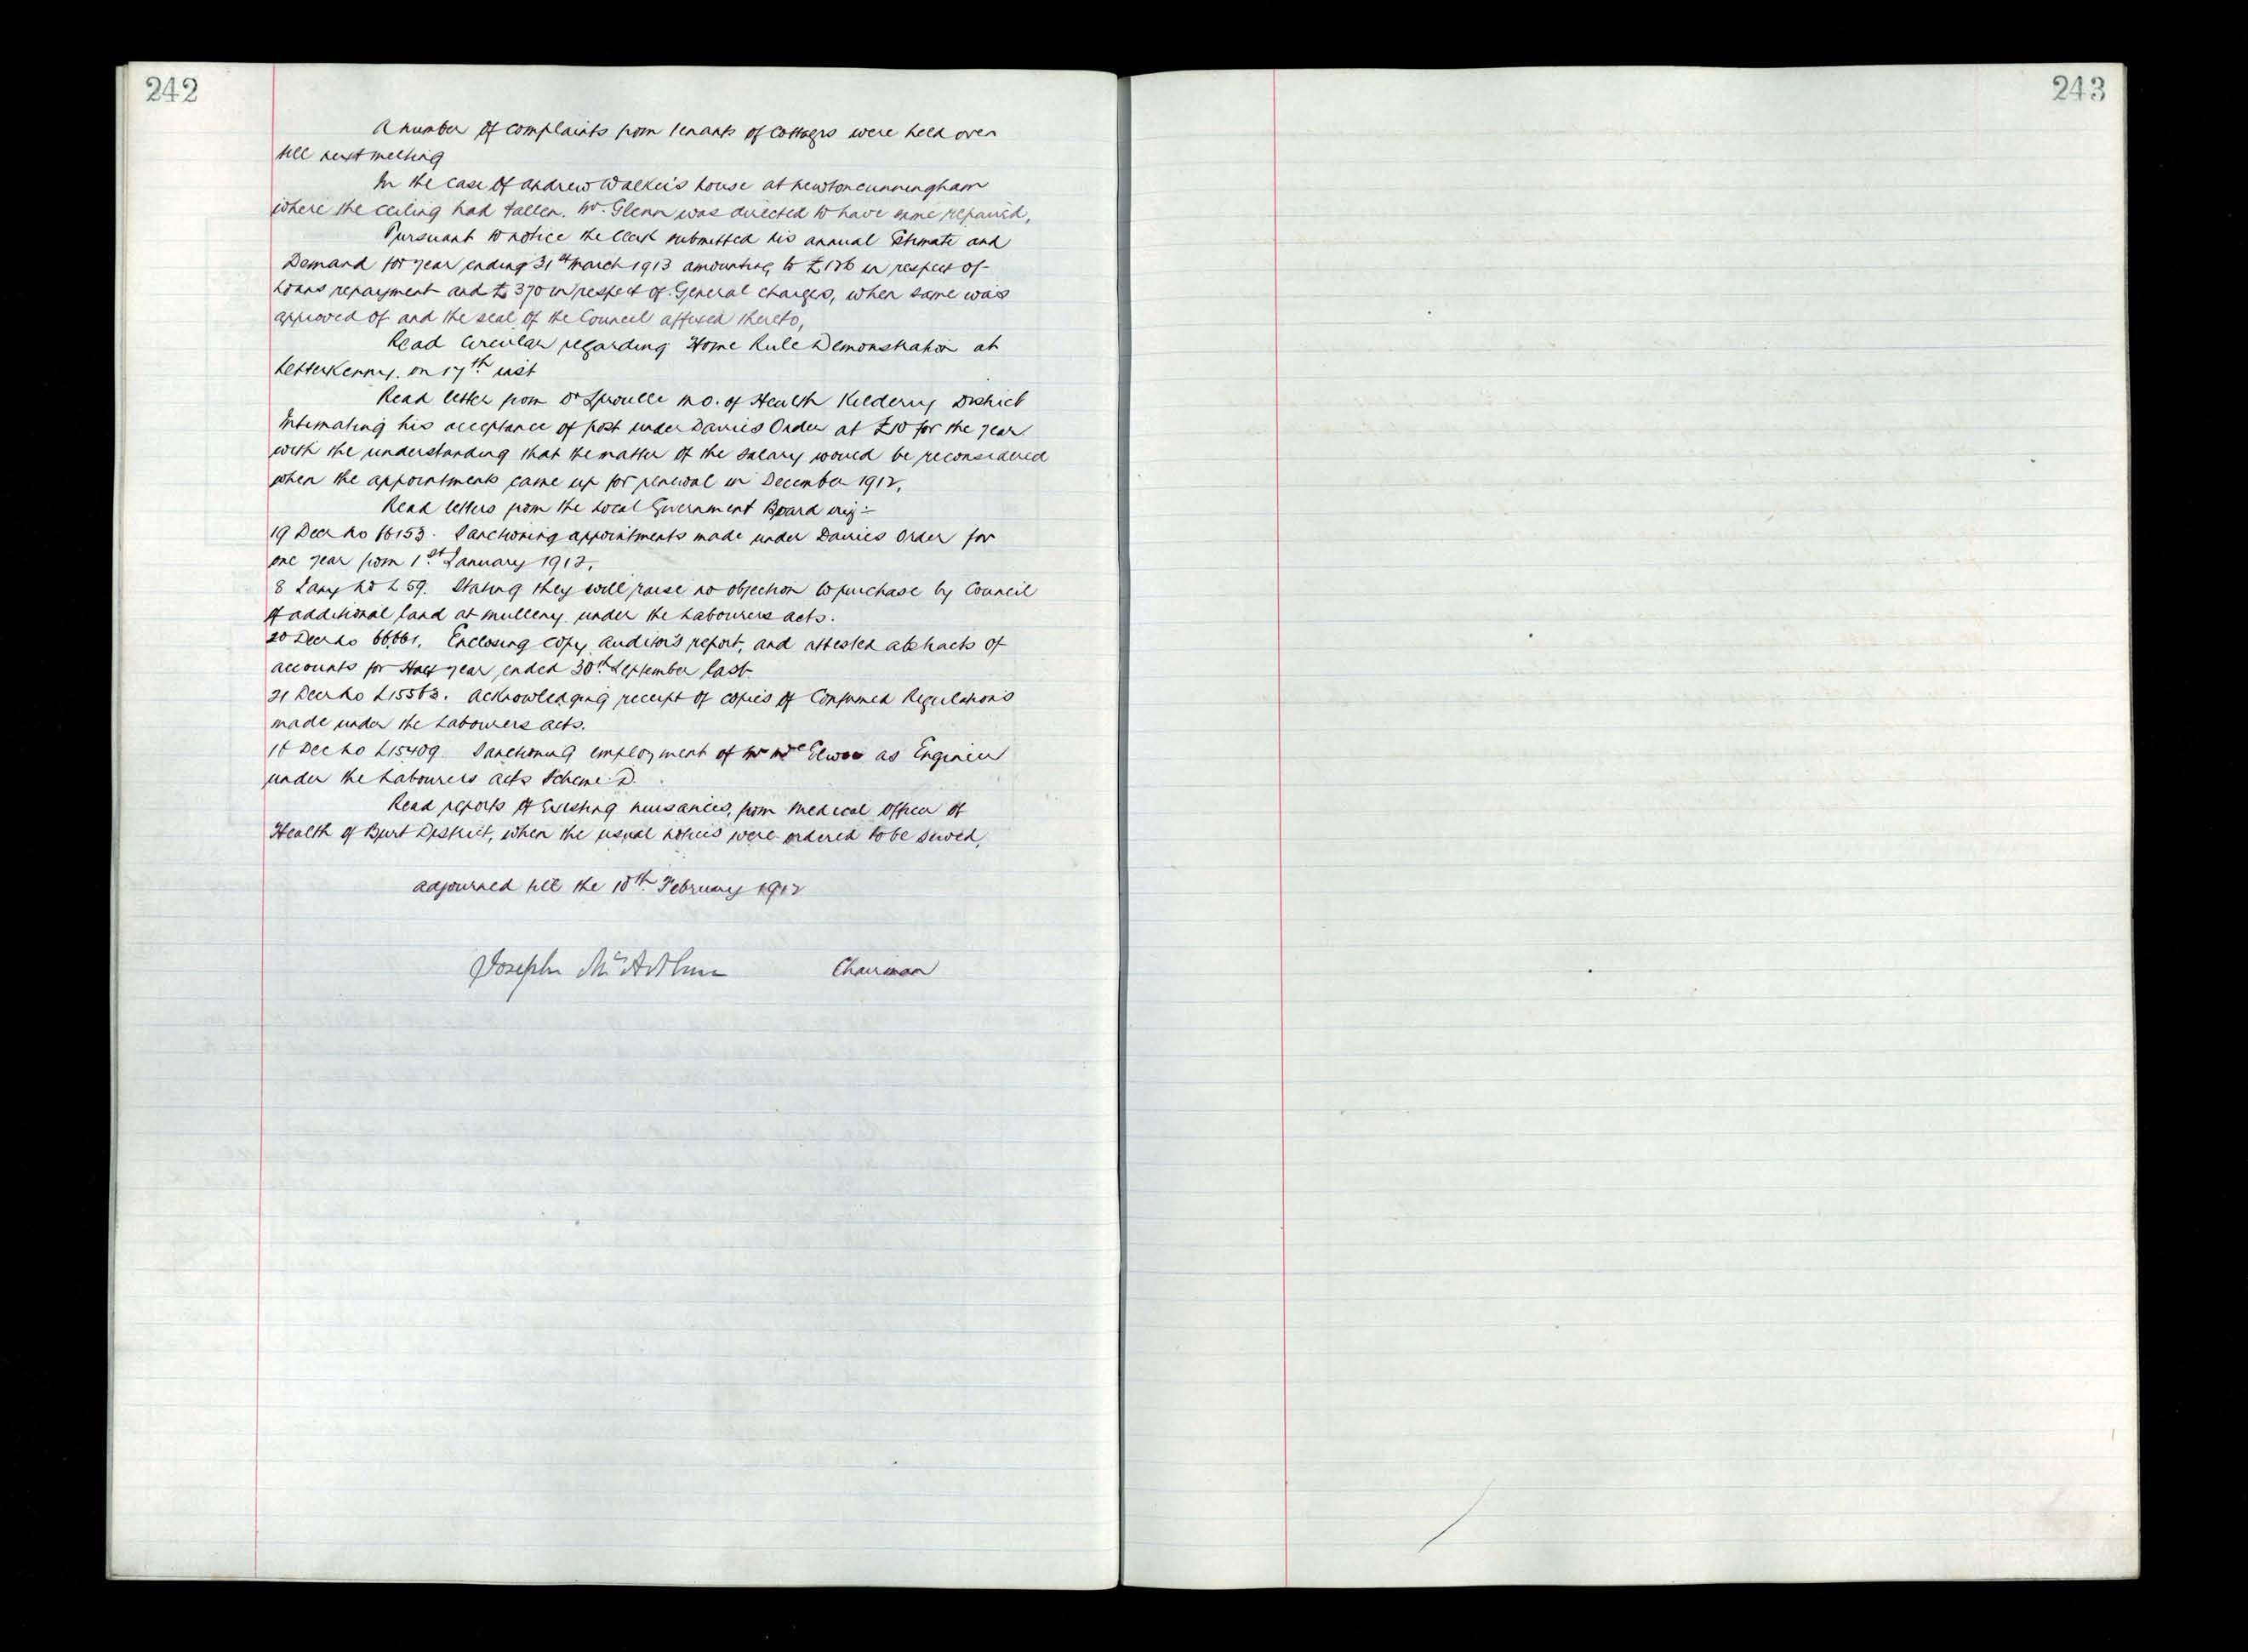 242
A number of complaints from tenants of Cottages were held over
till next meeting
In the case of Andrew Walker's house at Newtoncunningham
where the ceiling had fallen. Mr. Glenn was directed to have same repaired,
Pursuant to notice the Clerk submitted his annual Estimate and
Demand for year ending 31st March 1913 amounting to in respect of
Loans repayment and £370 in respect of General Charges, when same was
approved of and the seal of the Council affixed thereto,
Read Circular regarding Home Rule Demonstration at
Letterkenny. on 17th inst
Read letter from Dr Sproulle M.O. of Health Kilderry District
Intimating his acceptance of post under Dairies Order at £10 for the year
with the understanding that the matter of the salary would be reconsidered
when the appointments came up for renewal in December 1912,
Read letters from the Local Government Board viz:-
19 Decr No Sanctioning appointments made under Dairies Order for
one year from 1st January 1912,
8 Jany No L59. Stating they will raise no objection to purchase by Council
of additional land at Mulleny under the Labourers Acts.
20 Decr No Enclosing copy Auditor's report, and attested abstracts of
accounts for Half year ended 30th September last
21 Decr No Acknowledging receipt of copies of Confirmed Regulations
made under the Labourers Acts.
Dec No L15409 Sanctioning employment of Mr as Engineer
under the Labourers Acts Scheme D.
Read reports of Existing nuisances, from Medical Officer of
Health of Burt District, when the usual notices were ordered to be served,
Adjourned till the February 1912
Joseph McArthur Chairman
243